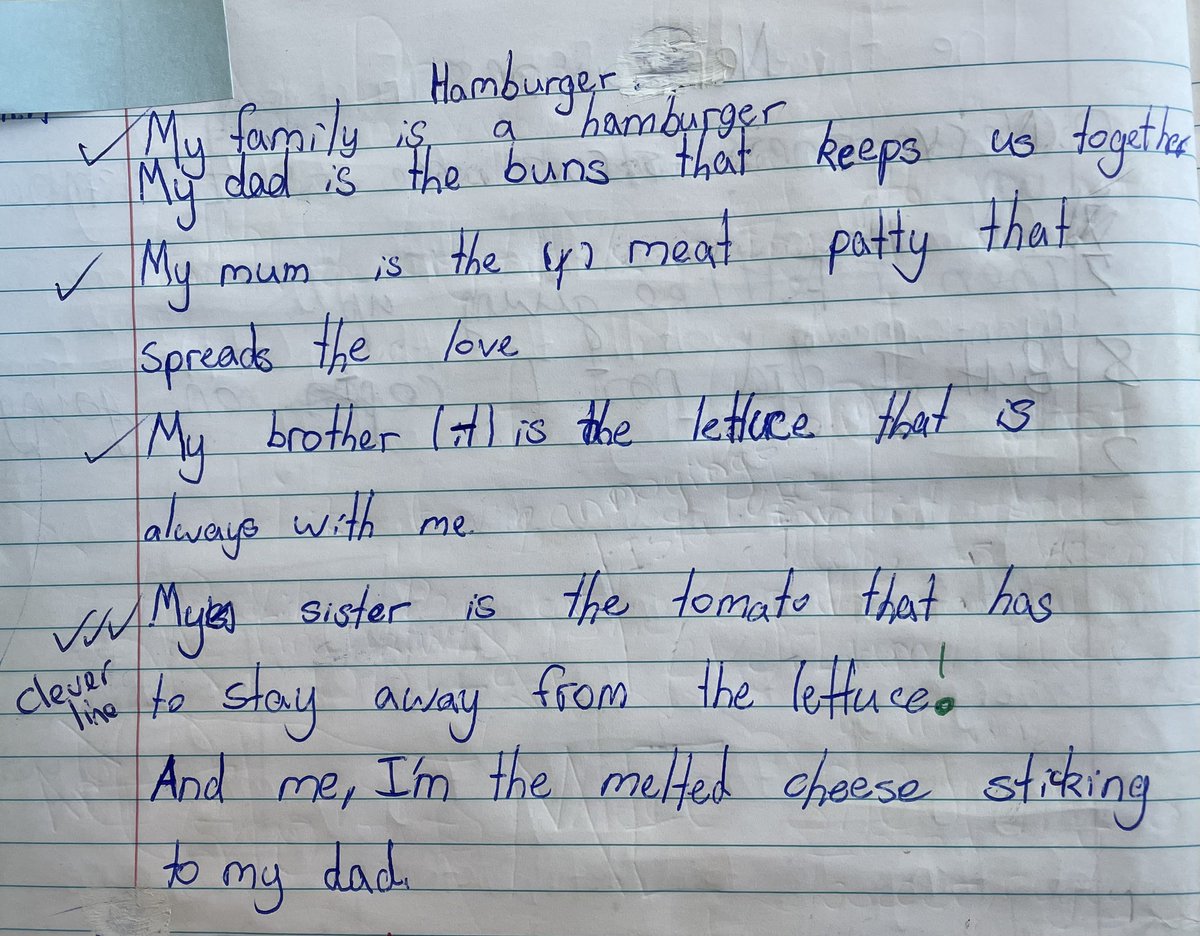 Hamburger
My family is a hamburger
My dad is the buns that keeps us together
My mum is the (y) meat patty that
spreads the love
My brother is the lettuce that is
always with me.
My sister is the tomato that has
clever line
to stay away from the lettuce!
And me, I'm the melted cheese sticking
to my dad.